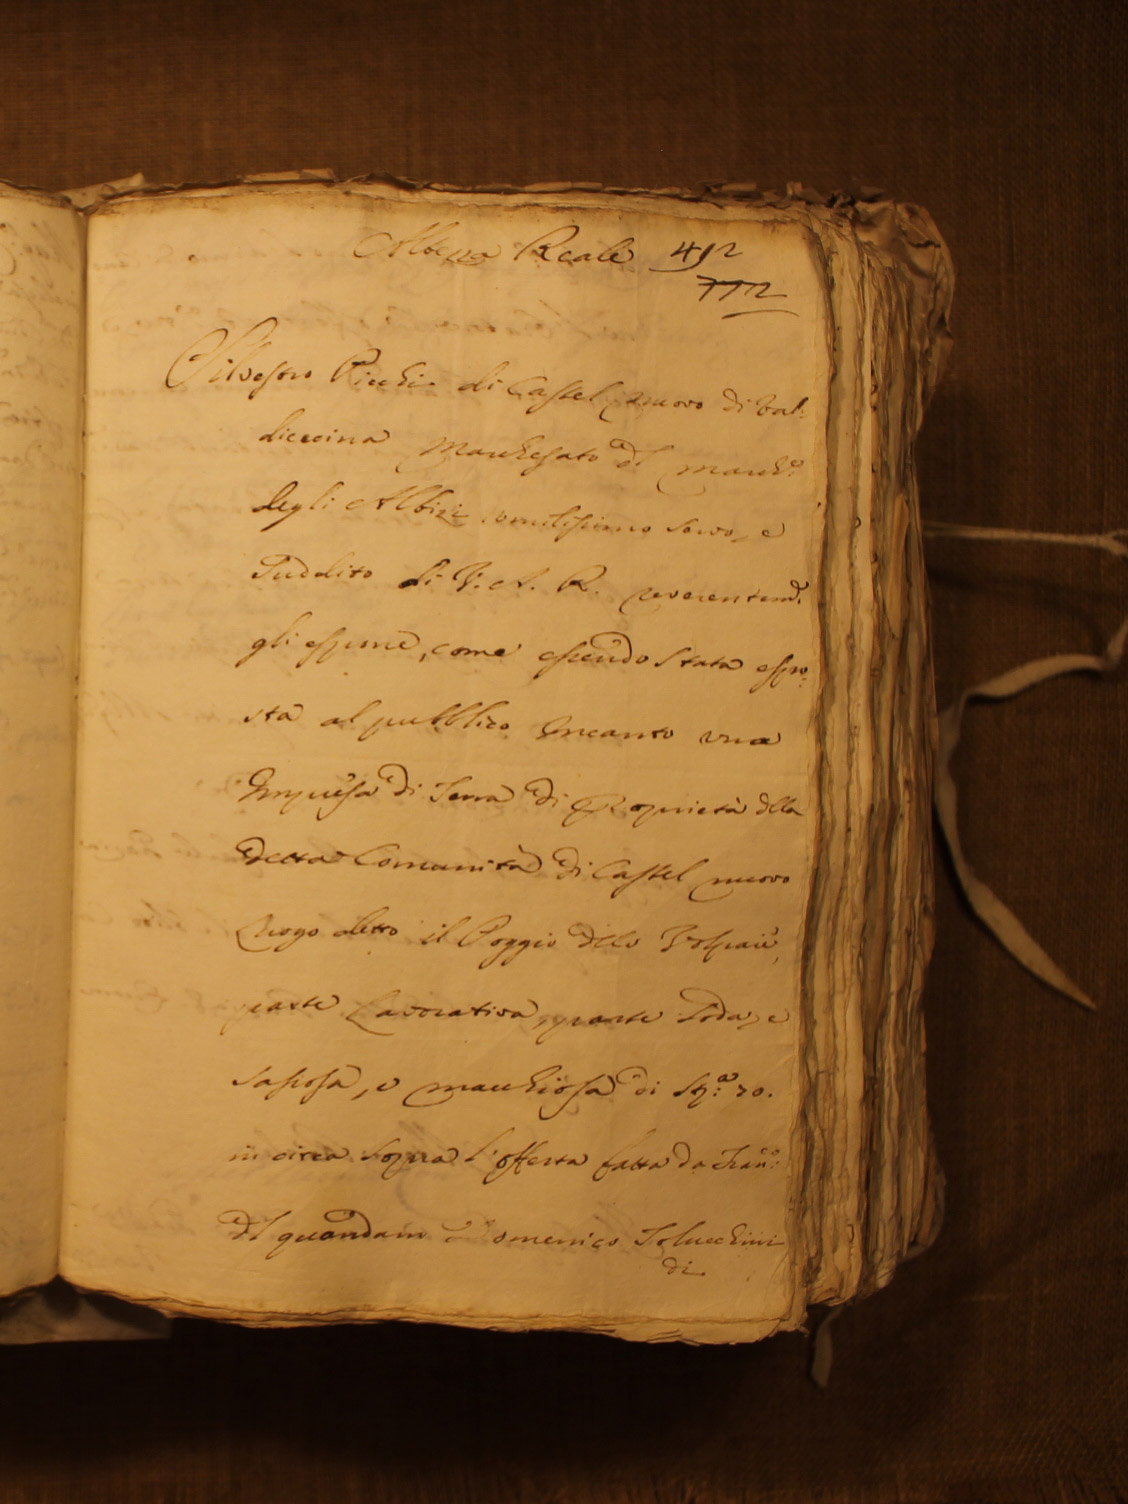 Altezza Reale 492
772
Silvestro Picchi di Castel nuovo di Val:
dicecina Marchesato dl March.e
degli Albizi umilissimo Servo, e
Suddito di V. A. R. reverentem.e
gli espone, come essendo stata espo:
sta al pubblico Incanto una
Impresa di Terra di Proprietà dlla
detta Comunità di Castel nuovo
Luogo detto il Poggio dllo
parte Lavorativa, parte Soda, e
sassosa, e macchiosa di Sti.a 70.
in circa sopra l'offerta fatta da Fran.co
dl quondam Domenico Tolucchini
di